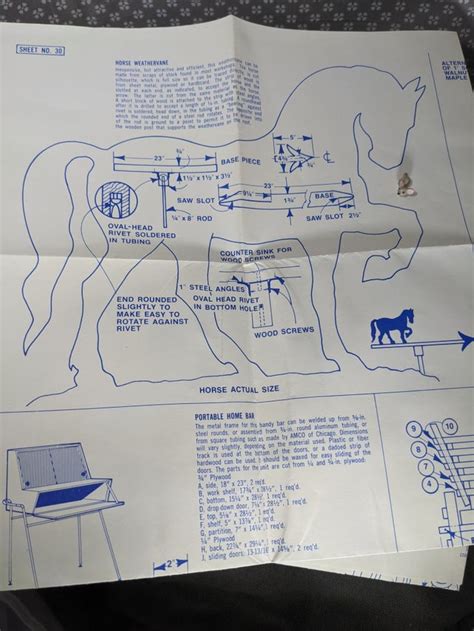 SHEET NO. 30
HORSE WEATHERVANE
Inexpensive, but attractive and efficient, this weathervane can be
made from scraps of stock found in most workshops. The
silhouette, which is full size as it can be traced directly, is cut
from sheet metal, plywood or hardboard. The
slotted at each end, as indicated, to accept the
arrow. The latter is cut from the same material as the
A short block of wood is attached to the strip with
after it is drilled to accept a length of
is soldered, head down, in the tubing as a
which the rounded end of the steel rod rotates. The
of the rod is ground to a point to permit it to be driven into
the wooden post that supports the weathervane
ALTERN
OF 1" S
WALNU
MAPLE
5"
23"
¾"
4¾"
BASE PIECE
1½" x 1½" x 3½"
23"
9¼"
BASE
SAW SLOT
1¾"
SAW SLOT
2½"
¼" x 8" ROD
OVAL-HEAD
RIVET SOLDERED
IN TUBING
COUNTER SINK FOR
WOOD SCREWS
1" STEEL ANGLES
OVAL HEAD RIVET
IN BOTTOM HOLE
END ROUNDED
SLIGHTLY TO
MAKE EASY TO
ROTATE AGAINST
RIVET
WOOD SCREWS
HORSE ACTUAL SIZE
PORTABLE HOME BAR
The metal frame for this handy bar can be welded up from ⅜-in.
steel rounds, or assembled from ¾-in. round aluminum tubing, or
from square tubing such as made by AMCO of Chicago. Dimensions
will vary slightly, depending on the material used. Plastic or fiber
track is used at the bottom of the doors, or a dadoed strip of
hardwood can be used. It should be waxed for easy sliding of the
doors. The parts for the unit are cut from ¼ and ¾-in. plywood.
¾" Plywood
A, side, 18" x 23", 2 req'd.
B, work shelf, 17¾" x 28½", 1 req'd.
C, bottom, 15¼" x 28½", 1 req'd.
D, drop down door, 7⅛" x 28½", 1 req'd.
E, top, 5⅛" x 28½", 1 req'd.
F, shelf, 5" x 13⅞", 1 req'd.
G, partition, 7" x 14¼", 1 req'd.
¼" Plywood
H, back, 22¾" x 29¼", 1 req'd.
J, sliding doors, 13-13/16 x 14¾", 2 req'd.
2"
9
8
4
2
1
10